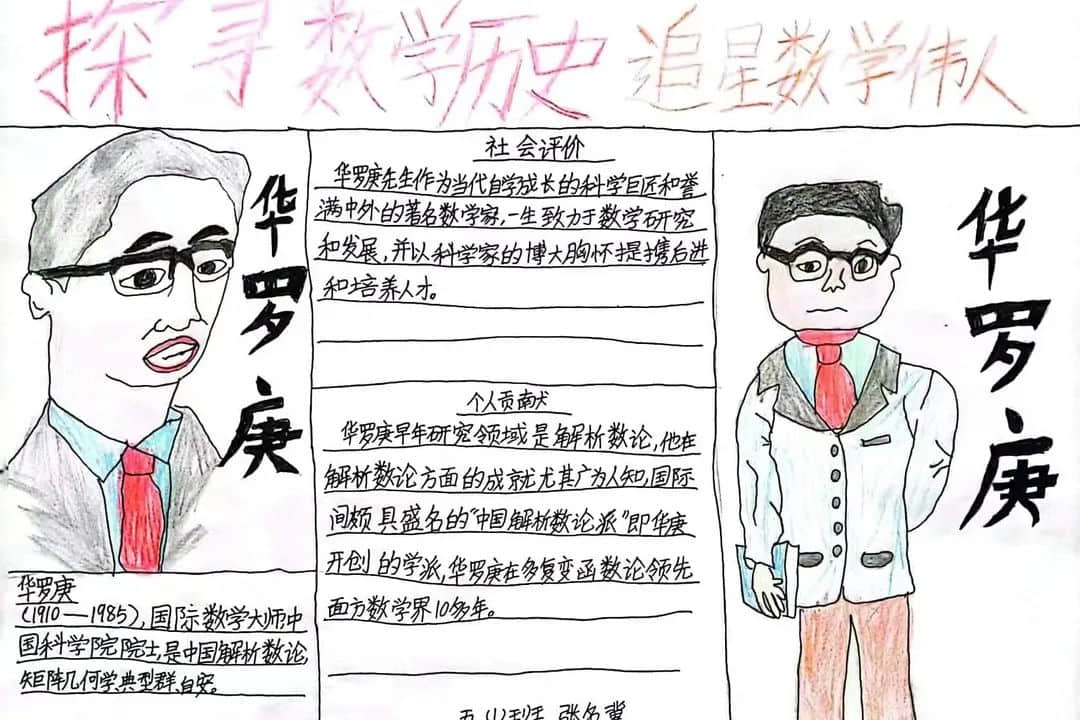 探寻数学历史 追星数学伟人
华罗庚
华罗庚
(1910—1985),国际数学大师,中
国科学院院士,是中国解析数论,
矩阵几何学、典型群、自安。
社会评价
华罗庚先生作为当代自学成长的科学巨匠和誉
满中外的著名数学家,一生致力于数学研究
和发展,并以科学家的博大胸怀提携后进
和培养人才。
个人贡献
华罗庚早年研究领域是解析数论,他在
解析数论方面的成就尤其广为人知,国际
间颇具盛名的“中国解析数论派”即华庚
开创的学派,华罗庚在多复变函数论领先
面方数学界10多年。
华罗庚